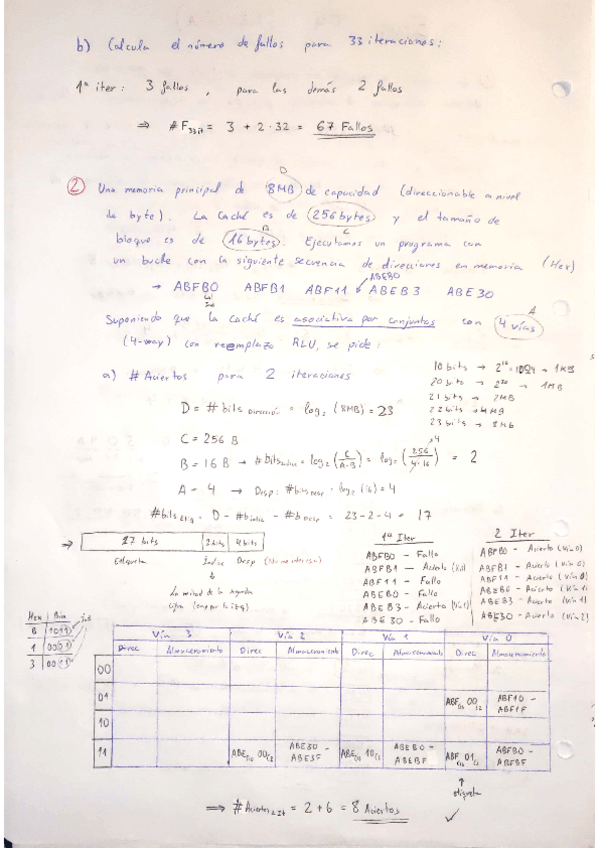 b) Calcula el número de fallos para 33 iteraciones:
1ª iter: 3 fallos, para las demás 2 fallos
⇒ #F33it = 3 + 2·32 = 67 Fallos
D
② Una memoria principal de 8MB de capacidad (direccionable a nivel
de byte). La Caché es de 256 bytes y el tamaño de
B C
bloque es de 16 bytes. Ejecutamos un programa con
un bucle con la siguiente secuencia de direcciones en memoria (Hex)
ABEB0
→ ABFB0 ABFB1 ABF11 ABEB3 ABE30
Ind
A
Suponiendo que la caché es asociativa por conjuntos con 4 vías
(4-way) con reemplazo RLU, se pide:
a) # Aciertos para 2 iteraciones
10 bits → 2^10 = 1024 → 1KB
20 bits → 2^20 → 1MB
21 bits → 2MB
22 bits → 4MB
23 bits → 8MB
D = # bits Dirección = log2 (8MB) = 23
C = 256 B
B = 16 B → # bits índice = log2 (C/A·B) = log2 (256/4·16) = 2
4
A = 4 → Desp: # bits Desp = log2 (16) = 4
# bits Etiq = D - # bíndice - # bDesp = 23 - 2 - 4 = 17
→ 17 bits 2 bits 4 bits
Etiqueta Índice Desp (No me interesa)
La mitad de la segunda
cifra (empezar la izq)
1ª Iter
ABFB0 - Fallo
ABFB1 - Acierto
ABF11 - Fallo
ABEB0 - Fallo
ABEB3 - Acierto (Vía 1)
ABE30 - Fallo
2 Iter
ABFB0 - Acierto (Vía 0)
ABFB1 - Acierto (Vía 0)
ABF11 - Acierto (Vía 0)
ABEB0 - Acierto (Vía 1)
ABEB3 - Acierto (Vía 1)
ABE30 - Acierto (Vía 2)
Hex Bin Ind
B 1011
1 0001
3 0011
Vía 3 Vía 2 Vía 1 Vía 0
Direc Almacenamiento Direc Almacenamiento Direc Almacenamiento Direc Almacenamiento
00
01 ABF 00 ABF10 - ABF1F
10
11 ABE 00 ABE30 - ABE3F ABE 10 ABEB0 - ABEBF ABF 01 ABFB0 - ABFBF
etiqueta
⇒ # Aciertos 2 It = 2 + 6 = 8 Aciertos ✓